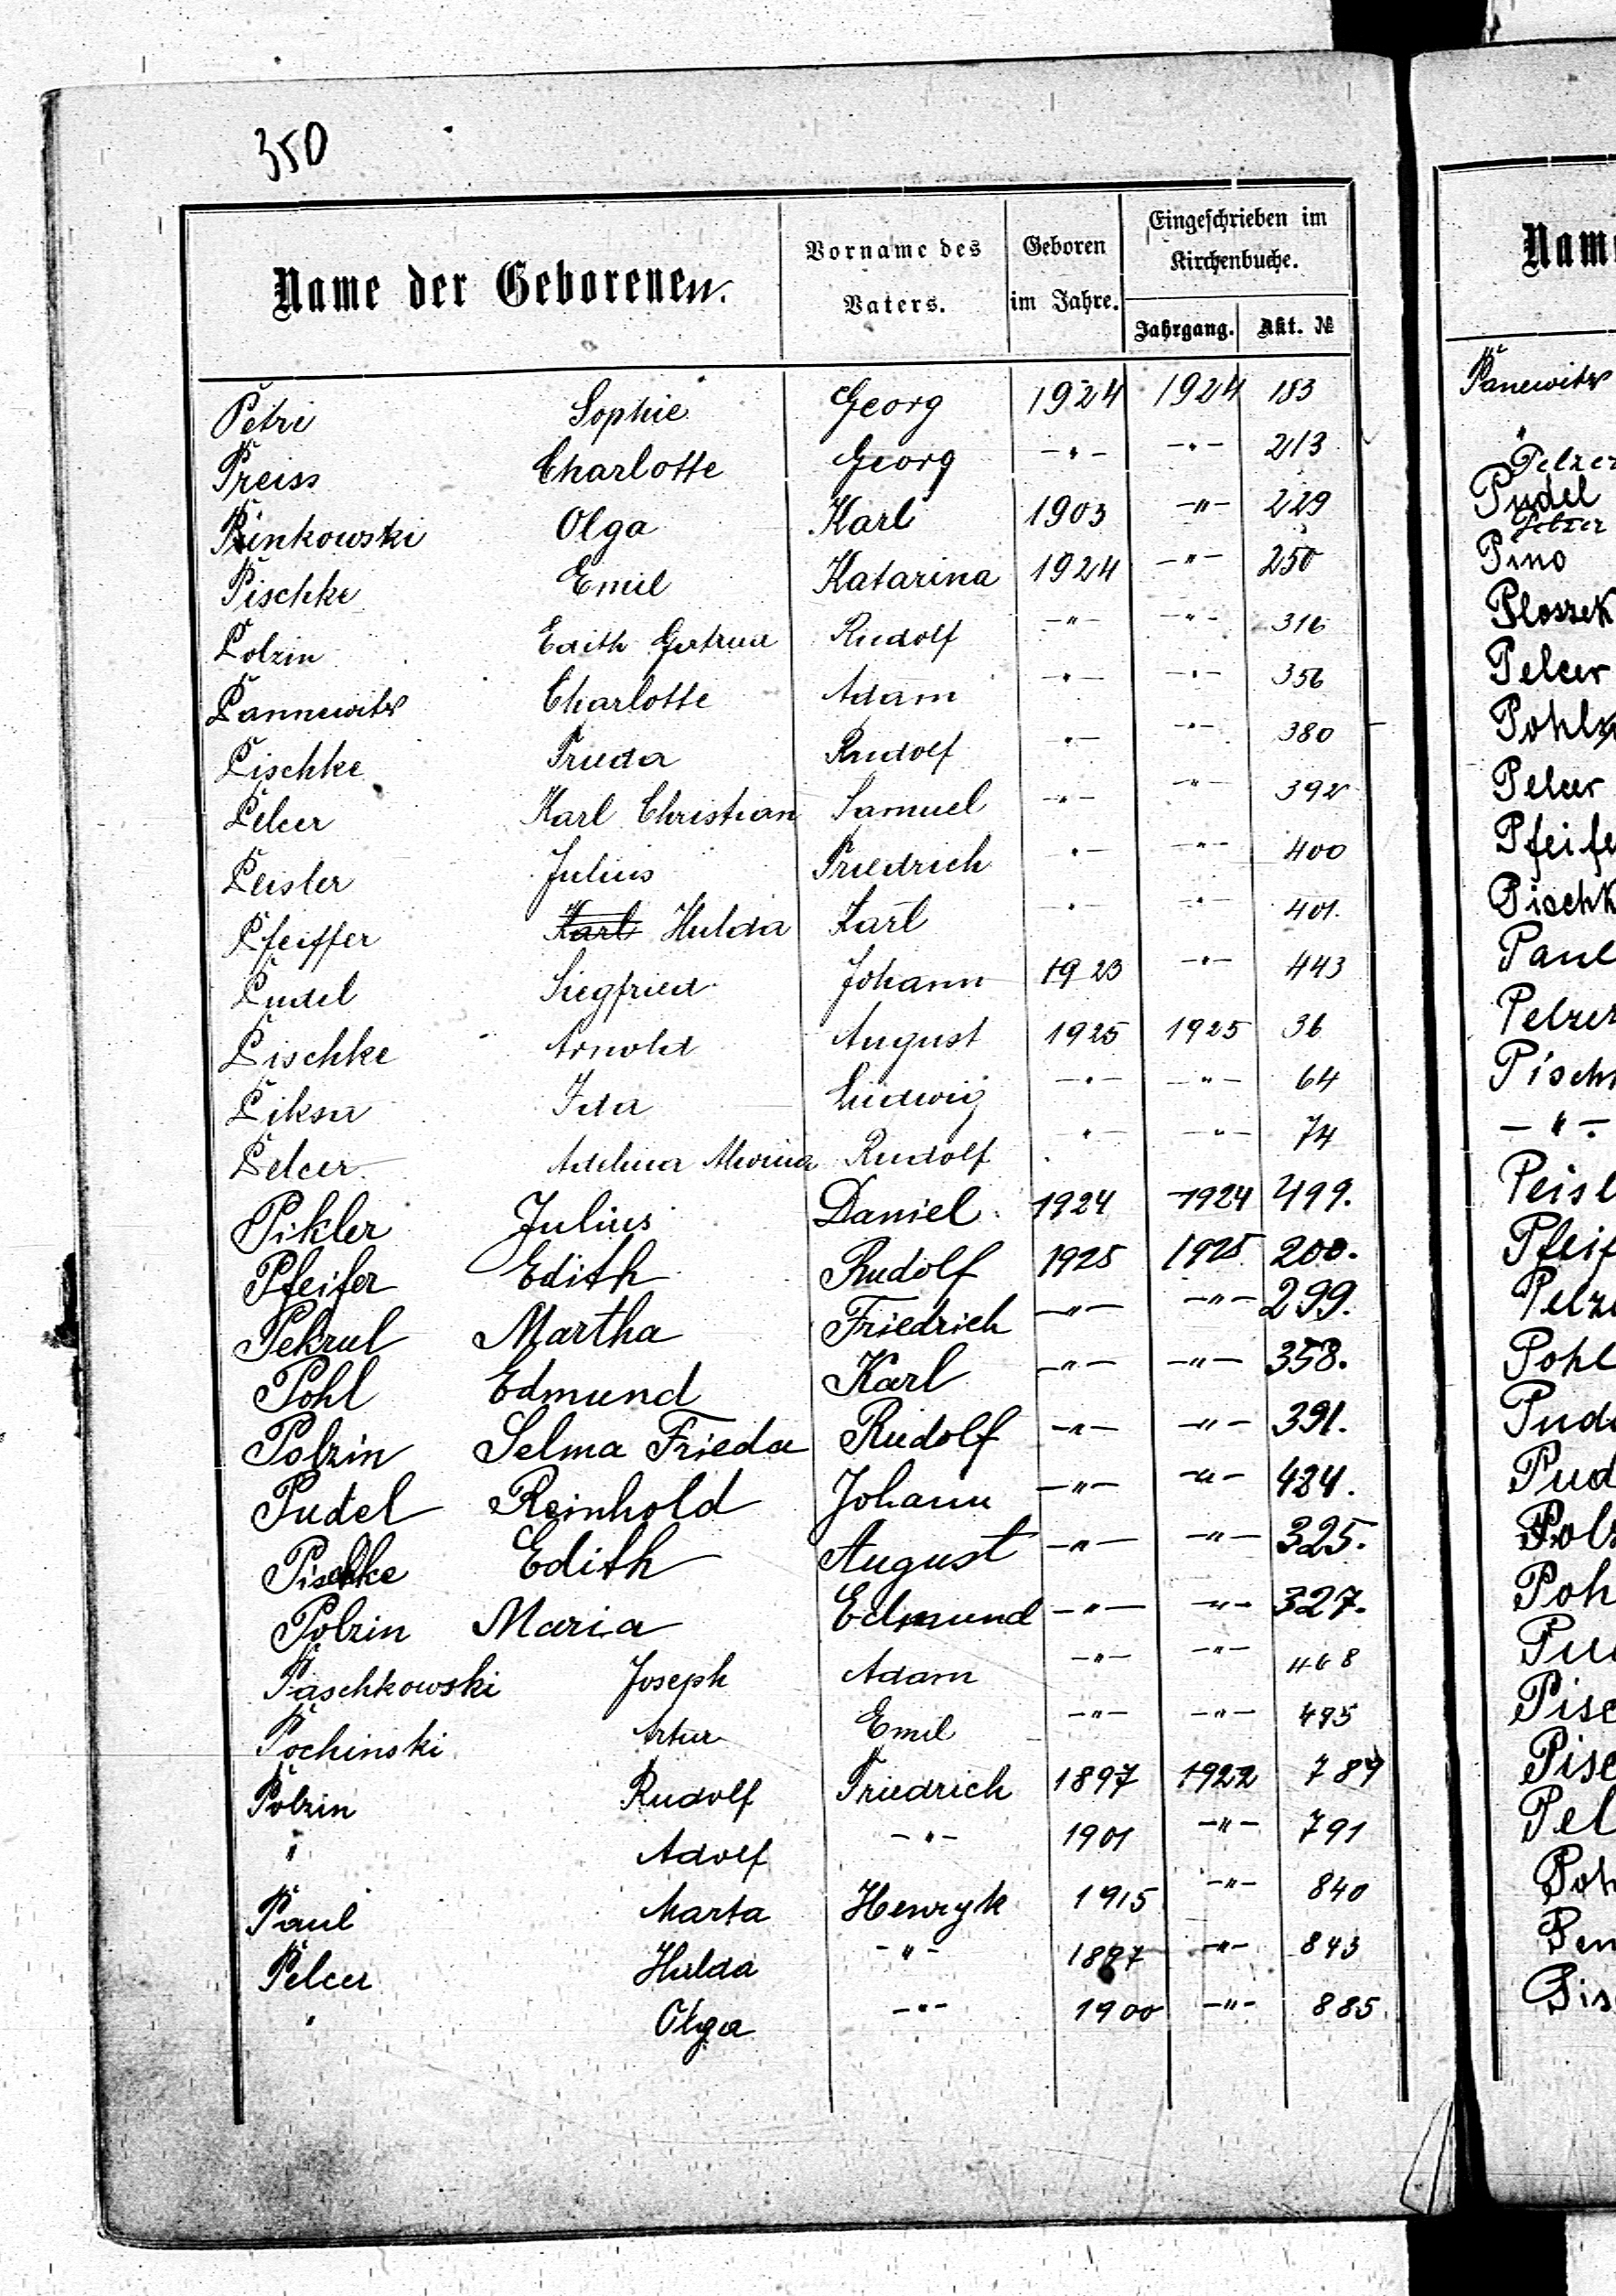 350
Name der Geborenen. Vorname des Vaters. Geboren im Jahre. Eingeschrieben im Kirchenbuche. Jahrgang. Akt. №
Petri Sophie Georg 1924 1924 183
Preiss Charlotte Georg -"- -"- 213
Pinkowski Olga Karl 1903 -"- 229
Pischke Emil Katarina 1924 -"- 250
Polzin Edith Gertrud Rudolf -"- -"- 316
Pannewitz Charlotte Adam -"- -"- 356
Pischke Frieda Rudolf -"- -"- 380
Pelcer Karl Christian Samuel -"- -"- 392
Peisler Julius Friedrich -"- -"- 400
Pfeiffer Karl Hulda Karl -"- -"- 401.
Pudel Siegfried Johann 1923 -"- 443
Pischke Arnold August 1925 1925 36
Piksa Ida Ludwig -"- -"- 64
Pelcer Adelina Alwina Rudolf -"- -"- 74
Pikler Julius Daniel 1924 1924 499.
Pfeifer Edith Rudolf 1925 1925 200.
Pekrul Martha Friedrich -"- -"- 299.
Pohl Edmund Karl -"- -"- 358.
Polzin Selma Frieda Rudolf -"- -"- 391.
Pudel Reinhold Johann -"- -"- 424.
Pischke Edith August -"- -"- 325.
Polzin Maria Edmund -"- -"- 327.
Paschkowski Joseph Adam -"- -"- 468
Pochinski Artur Emil -"- -"- 495
Polzin Rudolf Friedrich 1897 1922 789
" Adolf -"- 1901 -"- 791
Paul Marta Henryk 1915 -"- 840
Pelcer Hulda -"- 1897 -"- 843
" Olga -"- 1900 -"- 885
Nam
Panewitz
"
Pelzer
Pudel
Pelzer
Pino
Plossek
Pelcer
Pohl
Pelcer
Pfeife
Pischk
Paul
Pelzer
Pisch
-"-
Peisl
Pfeif
Pelze
Pohl
Pude
Pud
Polz
Poh
Pu
Pisc
Pisc
Pel
Poh
Pen
Pis